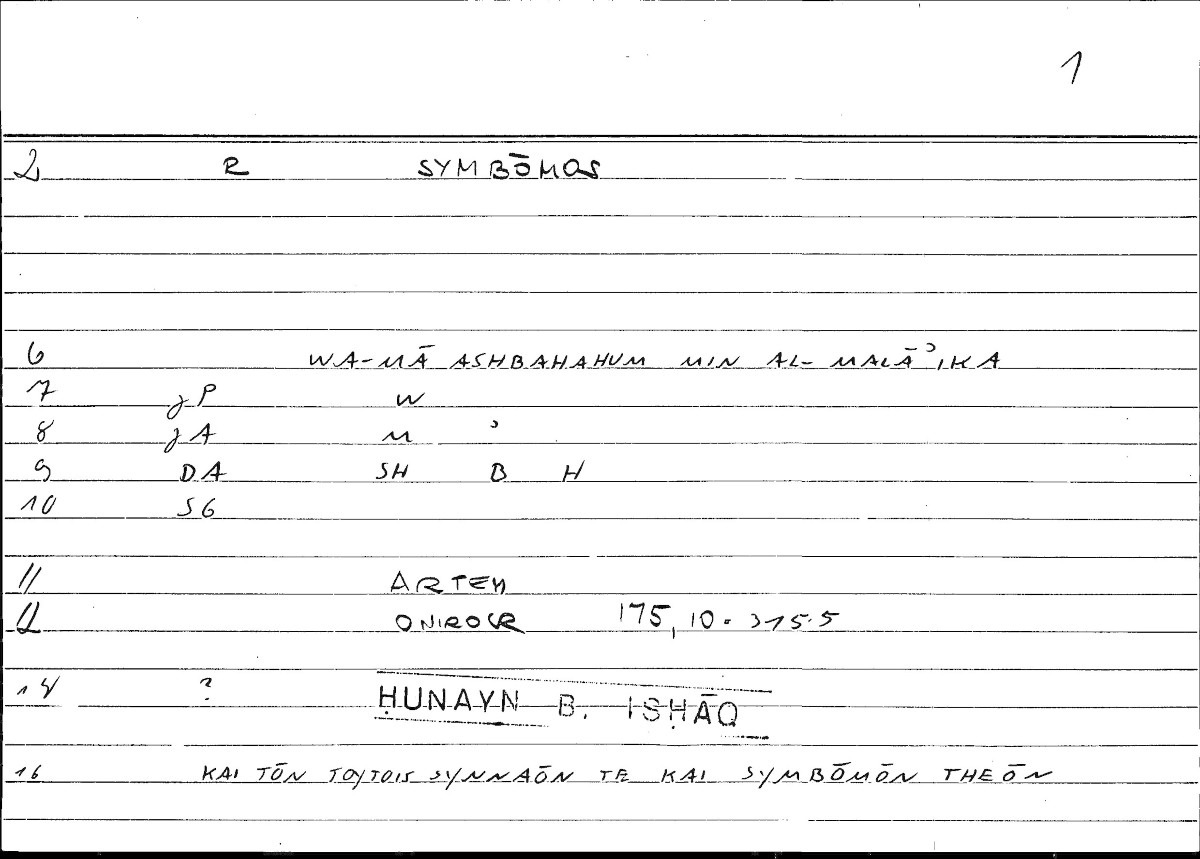 1
2 R SYMBŌMOS
6 WA-MĀ ASHBAHAHUM MIN AL-MALĀʾIKA
7 JP W
8 JA M ʾ
9 DA SH B H
10 SG
11 ARTEM
12 ONIROCR 175,10 = 315.5
14 ? ḤUNAYN B. ISḤĀQ
16 KAI TŌN TOYTOIS SYNNAŌN TE KAI SYMBŌMŌN THEŌN